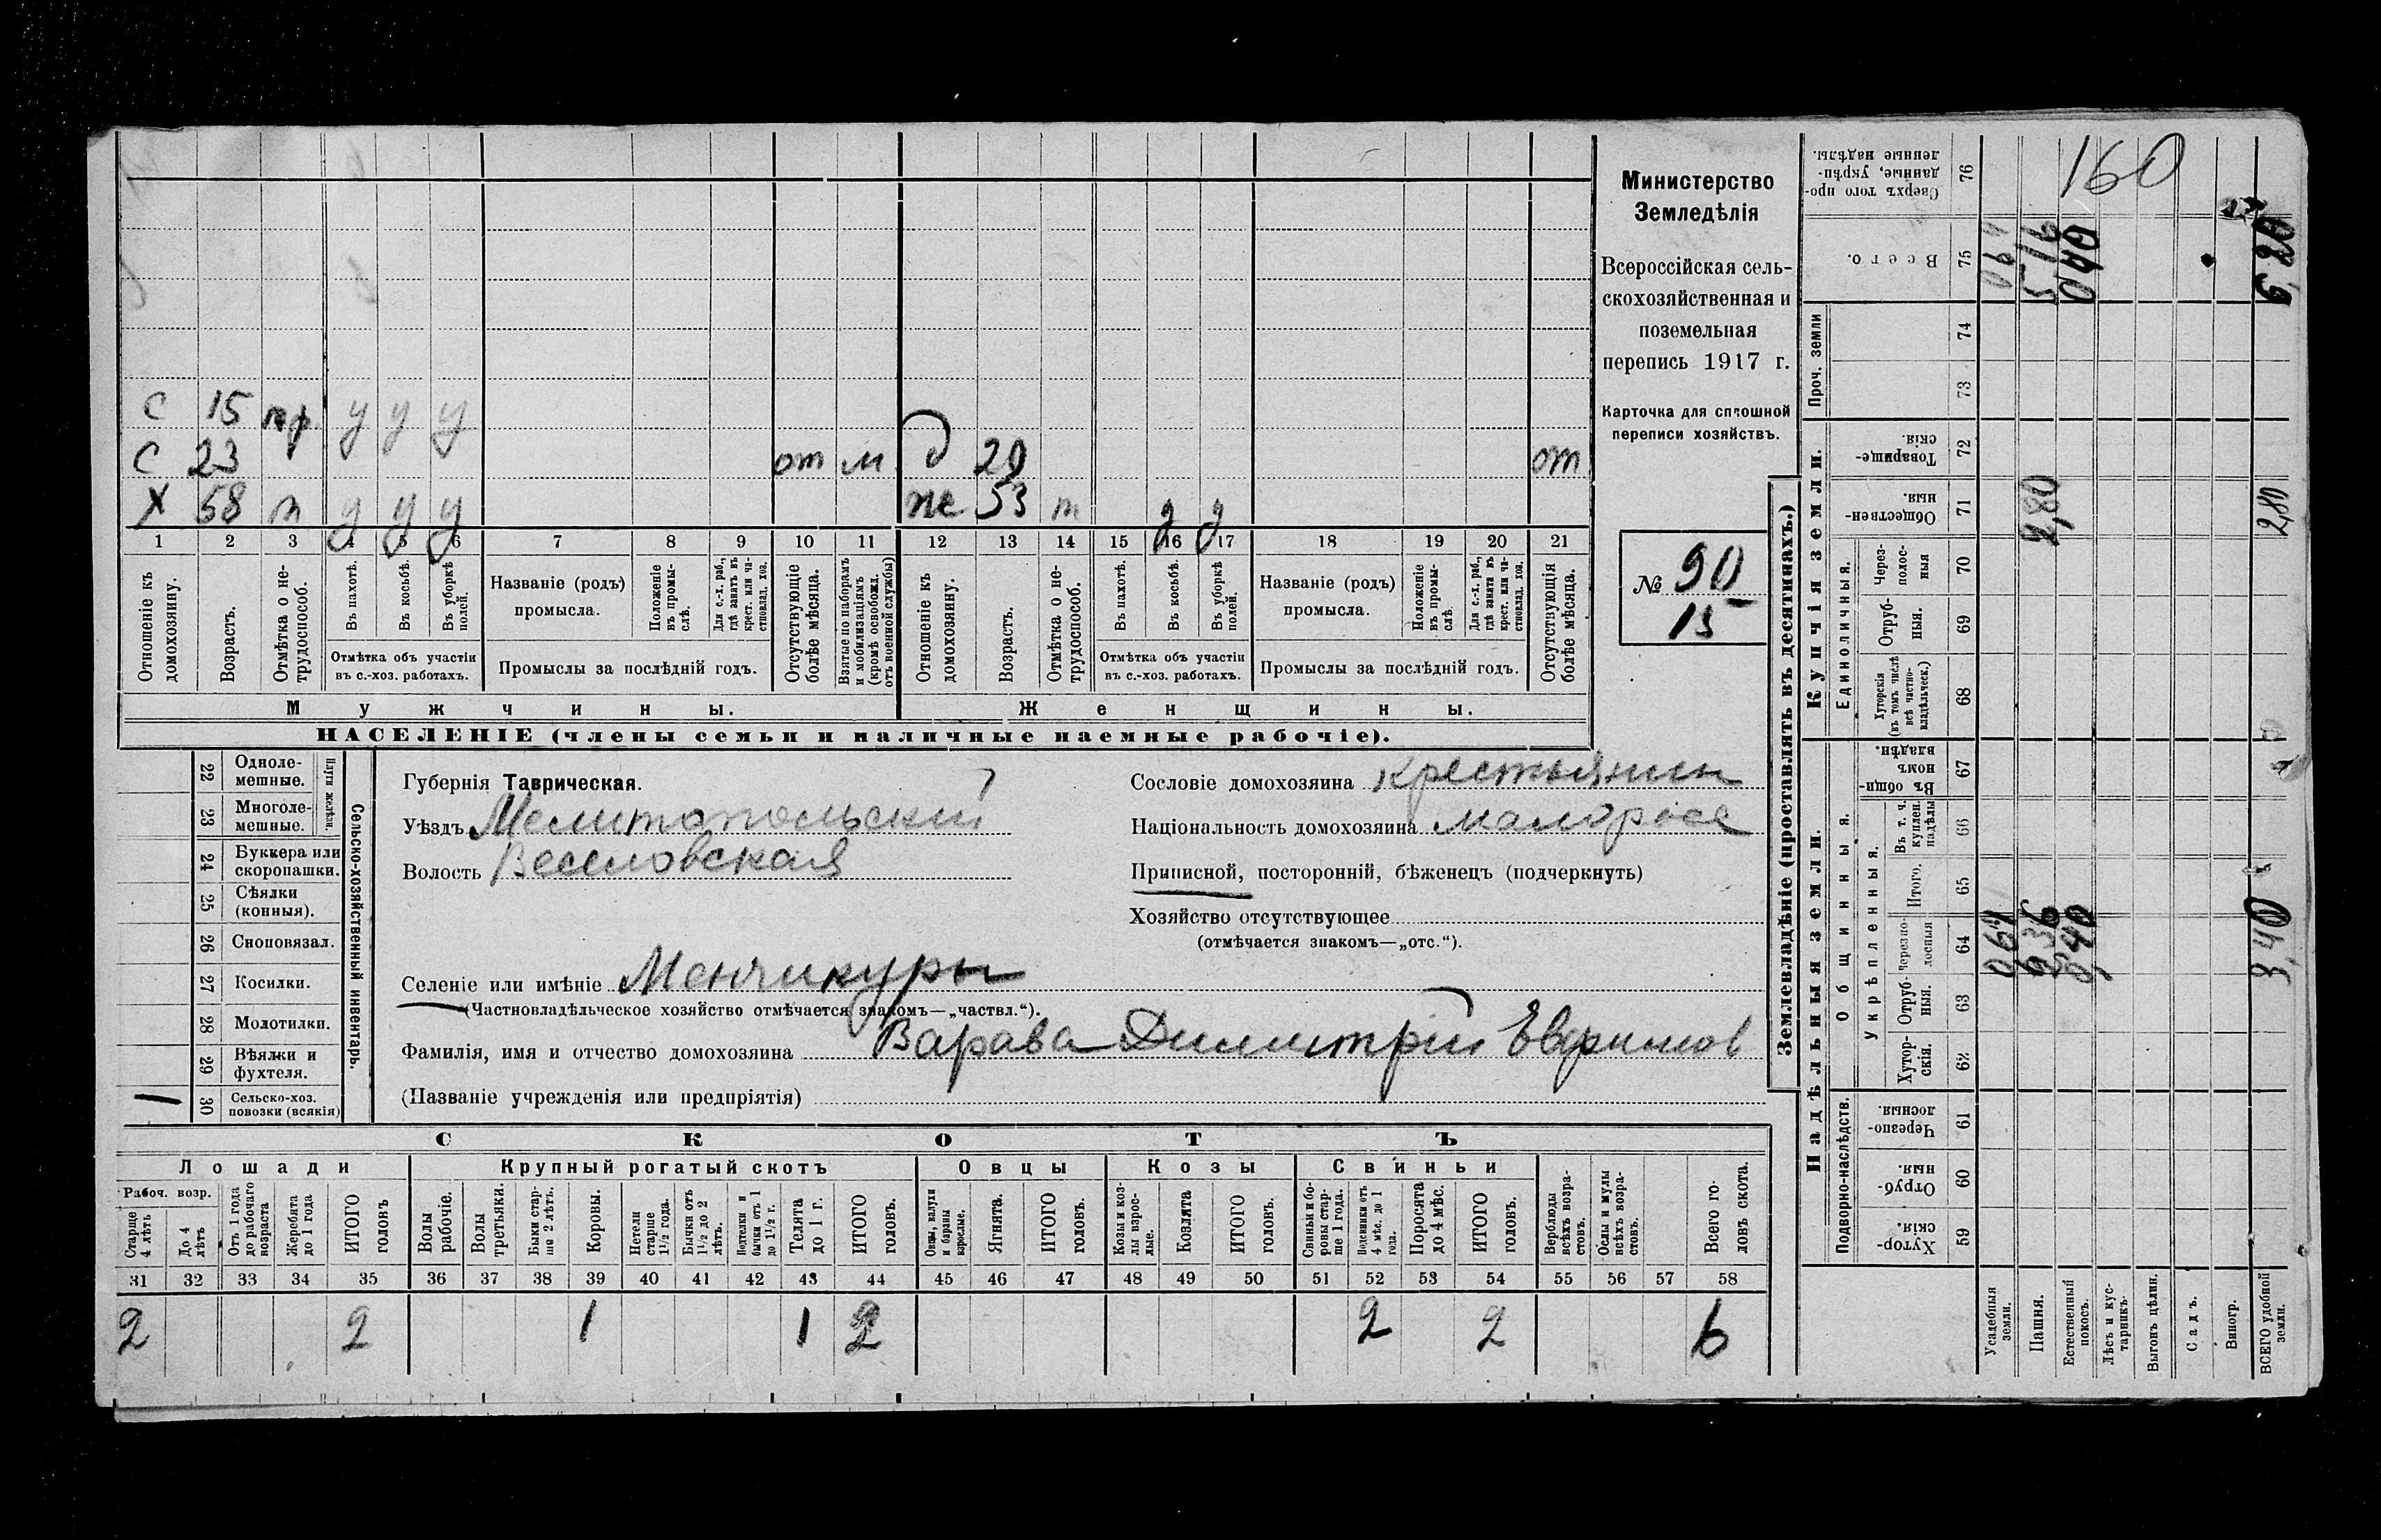 С 15 пр у у у
С 23 от м д 20 от
Х 58 т у у у же 53 т у у
1 2 3 4 5 6 7 8 9 10 11 12 13 14 15 16 17 18 19 20 21
Отношеніе къ домохозяину.
Возрастъ.
Отмѣтка о не-трудоспособ.
Въ пахотѣ.
Въ косьбѣ.
Въ уборкѣ полей.
Отмѣтка объ участіи
въ с.-хоз. работахъ.
Названіе (родъ)
промысла.
Положеніе въ промы-слѣ.
Для с.-х. раб., гдѣ занятъ въ крест. или ча-стновлад. хоз.
Промыслы за послѣдній годъ.
Отсутствующіе болѣе мѣсяца.
Взятые по наборамъ и мобилизаціямъ (кромѣ освобожд. отъ военной службы)
Отношеніе къ домохозяину.
Возрастъ.
Отмѣтка о не-трудоспособ.
Въ пахотѣ.
Въ косьбѣ.
Въ уборкѣ полей.
Отмѣтка объ участіи
въ с.-хоз. работахъ.
Названіе (родъ)
промысла.
Положеніе въ промы-слѣ.
Для с.-х. раб., гдѣ занята въ крест. или ча-стновлад. хоз.
Промыслы за послѣдній годъ.
Отсутствующія болѣе мѣсяца.
Мужчины.
Женщины.
НАСЕЛЕНІЕ (члены семьи и наличные наемные рабочіе).
Министерство
Земледѣлія
Всероссійская сель-
скохозяйственная и
поземельная
перепись 1917 г.
Карточка для сплошной
переписи хозяйствъ.
№ 90
15
22 Одноле-мешные.
23 Многоле-мешные.
Плуги желѣзн.
24 Буккера или скоропашки.
25 Сѣялки (конныя).
26 Сноповязал.
27 Косилки.
28 Молотилки.
29 Вѣялки и фухтеля.
1 30 Сельско-хоз. повозки (всякія)
Сельско-хозяйственный инвентарь.
Губернія Таврическая.
Уѣздъ Мелитопольский
Волость Веселовская
Сословіе домохозяина крестьянин
Національность домохозяина малоросс
Приписной, посторонній, бѣженецъ (подчеркнуть)
Хозяйство отсутствующее
(отмѣчается знакомъ—„отс.“).
Селеніе или имѣніе Менчикуры
(Частновладѣльческое хозяйство отмѣчается знакомъ—„частвл.“).
Фамилія, имя и отчество домохозяина Варава Димитрій Евфимов
(Названіе учрежденія или предпріятія)
СКОТЪ
Лошади Крупный рогатый скотъ Овцы Козы Свиньи
Рабоч. возр.
Старше 4 лѣтъ
До 4 лѣтъ
Отъ 1 года до рабочаго возраста
Жеребята до 1 года
ИТОГО головъ
Волы рабочіе.
Волы третьяки.
Быки стар-ше 2 лѣтъ.
Коровы.
Нетели старше 1½ года.
Бычки отъ 1½ до 2 лѣтъ.
Подтелки и бычки отъ 1 до 1½ г.
Телята до 1 г.
ИТОГО головъ.
Овцы, валухи и бараны взрослые.
Ягнята.
ИТОГО головъ.
Козы и коз-лы взрос-лые.
Козлята
ИТОГО головъ.
Свиньи и бо-ровы стар-ше 1 года.
Подсвинки отъ 4 мѣс. до 1 года.
Поросята до 4 мѣс.
ИТОГО головъ.
Верблюды всѣхъ возра-стовъ.
Ослы и мулы всѣхъ возра-стовъ.
Всего го-ловъ скота.
31 32 33 34 35 36 37 38 39 40 41 42 43 44 45 46 47 48 49 50 51 52 53 54 55 56 57 58
2 2 1 1 2 2 2 6
Землевладѣніе (проставлять въ десятинахъ.)
Надѣльныя земли. Купчія земли. Проч. земли
Подворно-наслѣдств.
Общинныя.
Укрѣпленныя.
Единоличныя.
Хутор-скія. 59
Отруб-ныя. 60
Черезпо-лосныя. 61
Хутор-скія. 62
Отруб-ныя. 63
Черезпо-лосныя 64
Итого. 65
Въ т. ч. куплен. надѣлы 66
Въ общин-номъ владѣн. 67
Хуторскія (въ томъ числѣ всѣ частно-владѣльческ.) 68
Отруб-ныя. 69
Через-полос-ныя 70
Обществен-ныя. 71
Товарище-скія. 72
73
74
Всего. 75
Сверхъ того про-данные, укрѣп-ленные надѣлы. 76
Усадебныя земли. 064 064
Пашня. 2,36 2,80 5 16
Естественный покосъ. 040 040
Лѣсъ и кус-тарникъ.
Выгонъ цѣлин.
Садъ.
Виногр.
ВСЕГО удобной земли. 3,40 2,80 6,20
160